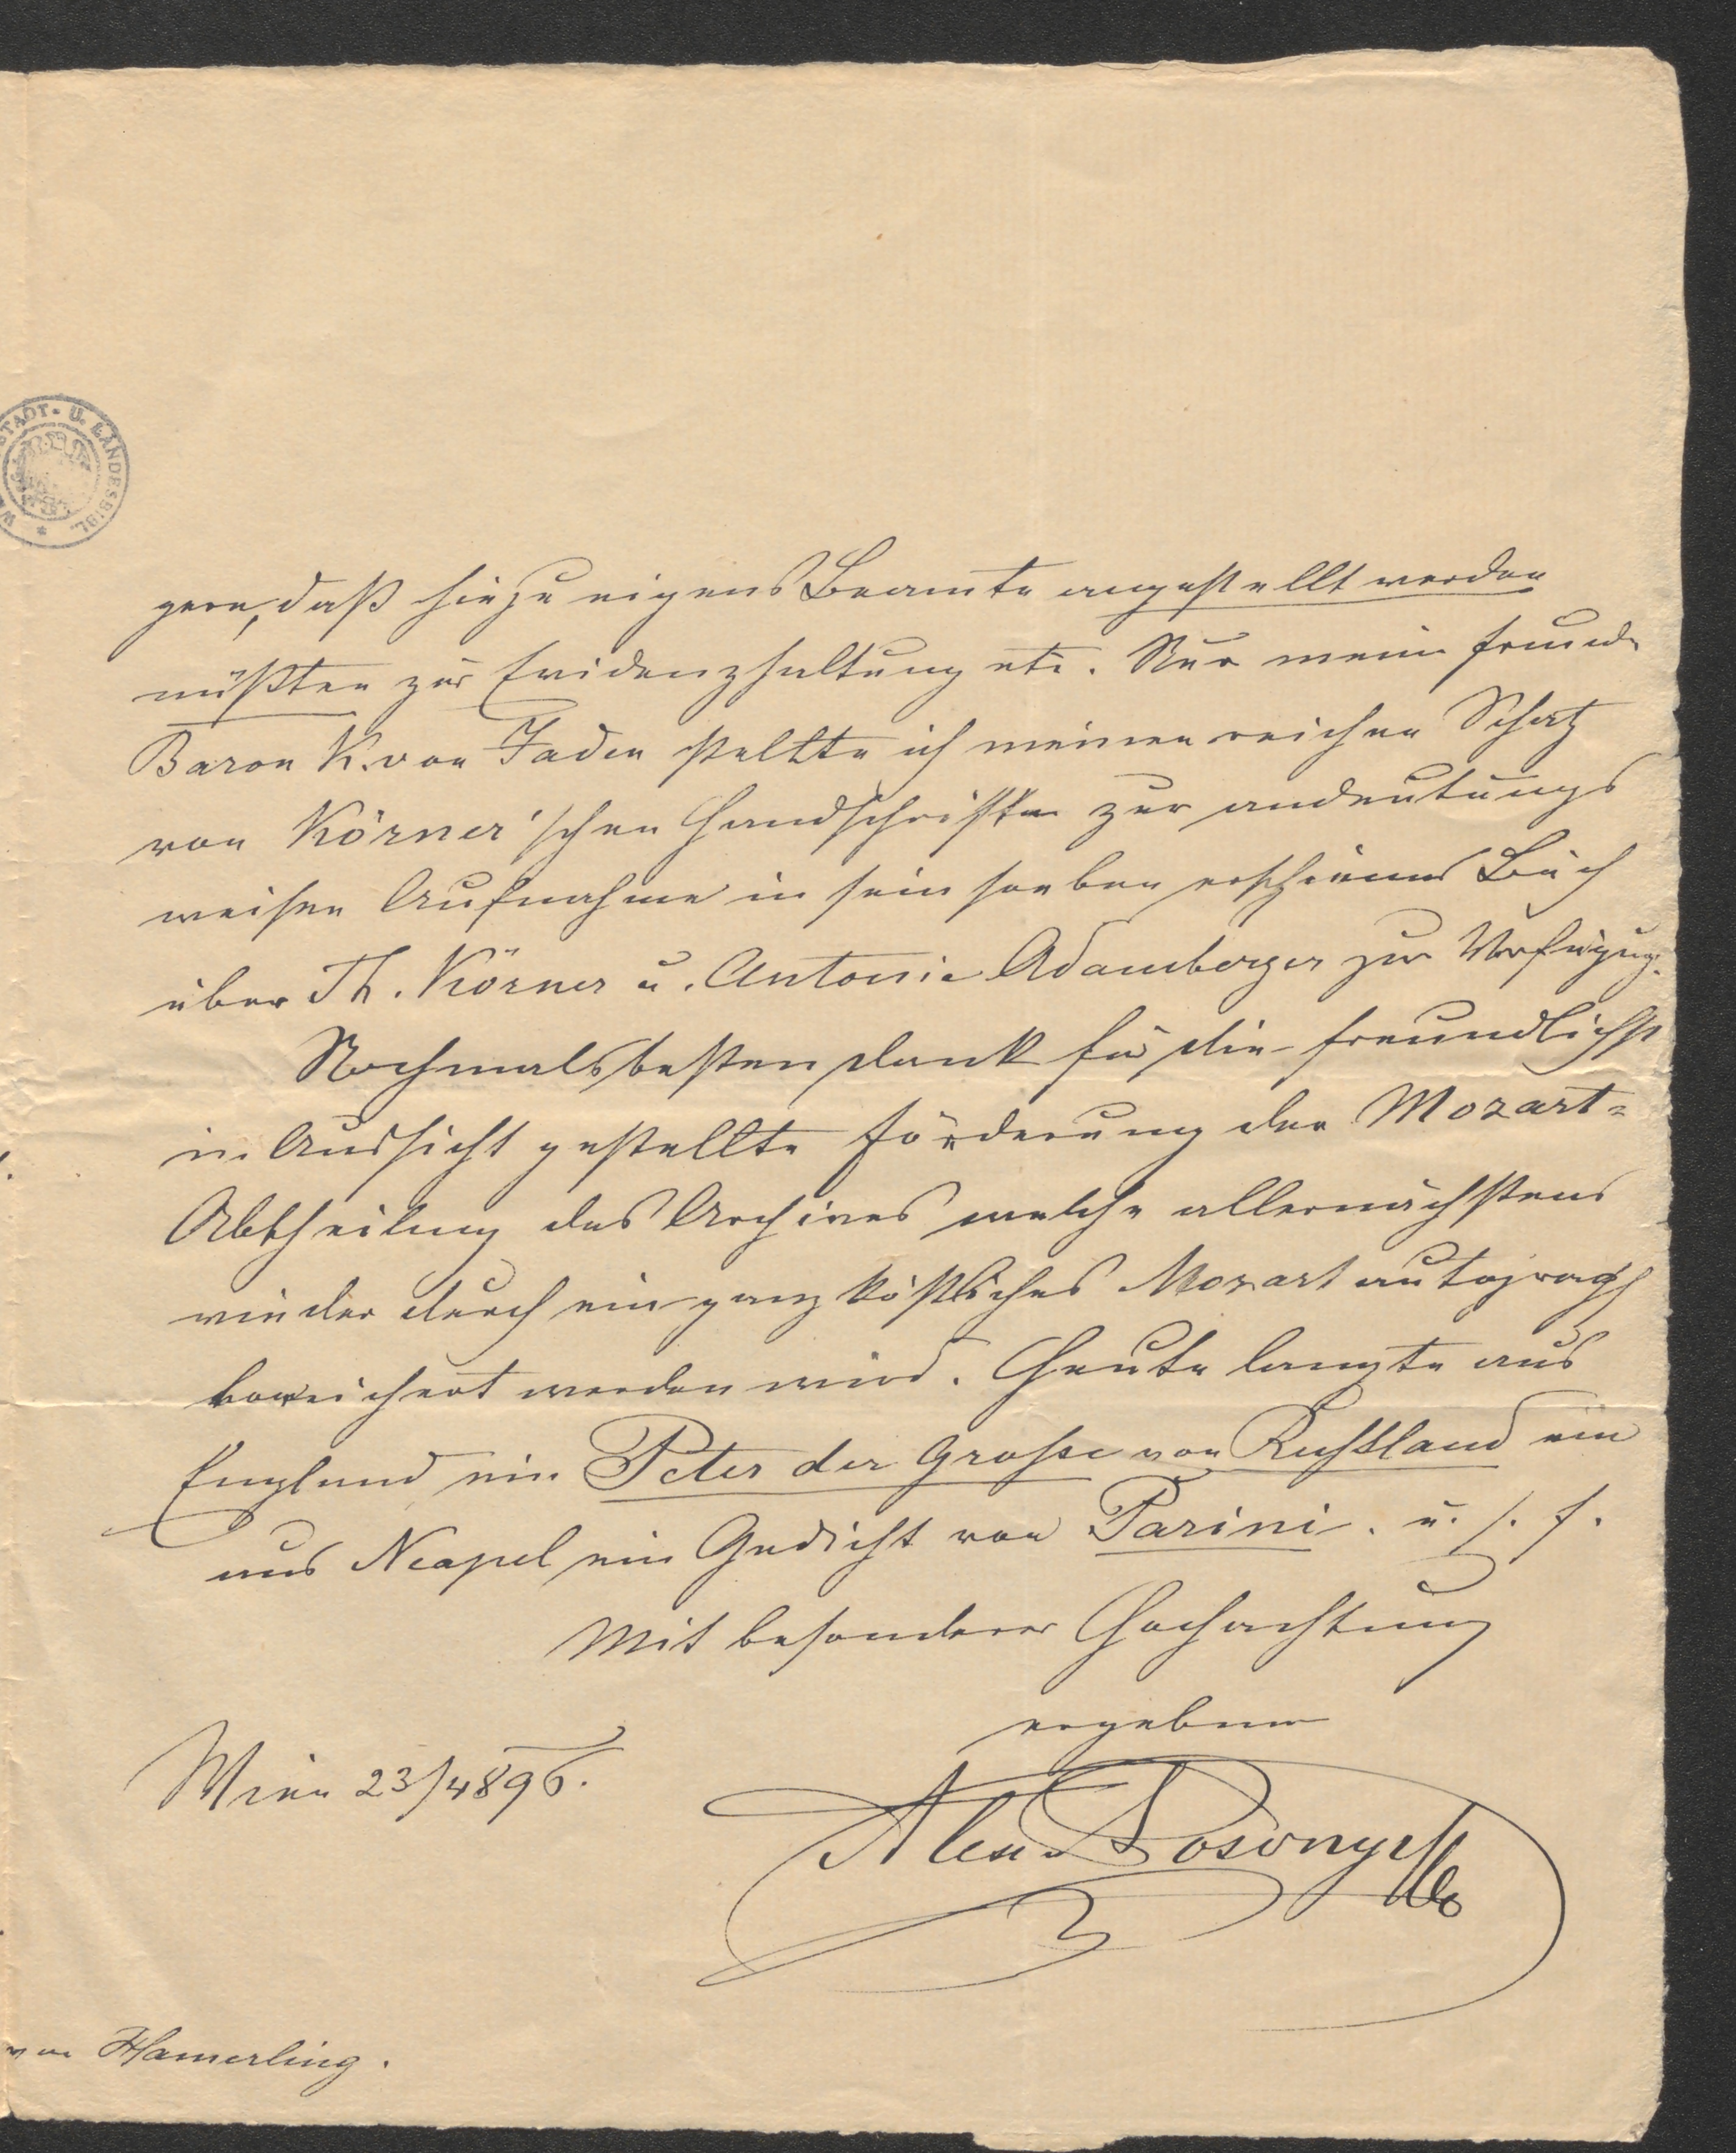 STADT- U. LANDESBIBL.
gern, daß hiezu eigens Beamte angestellt werden
müßten zur Evidenzhaltung etc. Nur meinem Freunde
Baron K. von Jaden stellte ich meinen reichen Schatz
von Körner'schen Handschriften zur andeutungs
weisen Aufnahme in sein soeben erschienenes Buch
über Th. Körner u. Antonie Adamberger zur Verfügung.
Nochmals besten Dank für die freundlichst
in Aussicht gestellte Förderung der Mozart=
Abtheilung des Archives welche allernächstens
wieder durch ein ganz köstliches Mozart autograph
bereichert werden wird. Heute langte aus
England ein Peter der Große von Rußland ein
aus Neapel ein Gedicht von Parini. u. s. f.
Mit besonderer Hochachtung
ergebener
Wien 23/4 896.
Alex. Posonyi
von Hamerling.